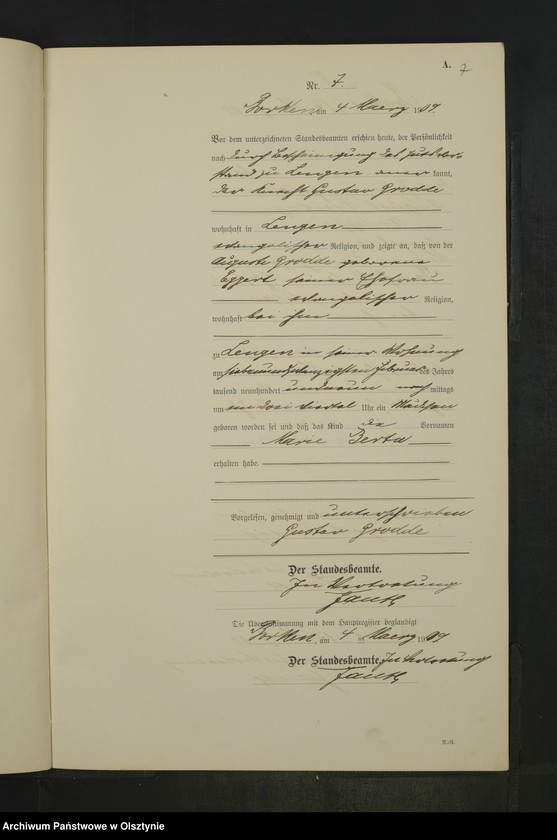 A. 7
Nr. 7.
Borken, am 4 Maerz 1909.
Vor dem unterzeichneten Standesbeamten erschien heute, der Persönlichkeit
nach durch Bescheinigung des
zu Lengen aner kannt,
der Knecht Gustav Grodde
wohnhaft in Lengen
evangelischer Religion, und zeigte an, daß von der
Auguste Grodde geborene
Eggert seiner Ehefrau
evangelischer Religion,
wohnhaft bei ihm
zu Lengen in seiner Wohnung
am siebenundzwanzigsten Februar des Jahres
tausend neunhundert undneun nach mittags
um ein drei viertel Uhr ein Mädchen
geboren worden sei und daß das Kind die Vornamen
Marie Berta
erhalten habe.
Vorgelesen, genehmigt und unterschrieben
Gustav Grodde
Der Standesbeamte.
In Vertretung
Die Übereinstimmung mit dem Hauptregister beglaubigt
Borken, am 4 Maerz 1909
Der Standesbeamte. In Vertretung
Archiwum Państwowe w Olsztynie